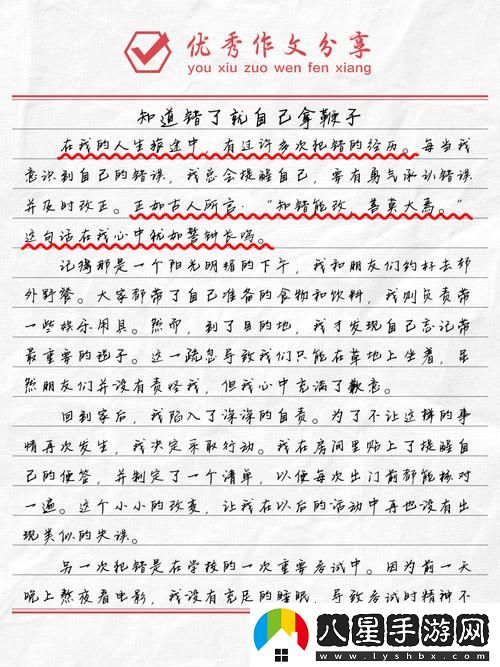 优秀作文分享
you xiu zuo wen fen xiang
知道错了就自己拿鞭子
在我的人生旅途中，有过许多次犯错的经历。每当我
意识到自己的错误，我总会提醒自己，要有勇气承认错误
并及时改正。正如古人所言：“知错能改，善莫大焉。”
这句话在我心中犹如警钟长鸣。
记得那是一个阳光明媚的下午，我和朋友们约好去郊
外野餐。大家都带了自己准备的食物和饮料，我则负责带
一些娱乐用具。然而，到了目的地，我才发现自己忘记带
最重要的毯子。这一疏忽导致我们只能在草地上坐着，虽
然朋友们并没有责怪我，但我心中充满了歉意。
回到家后，我陷入了深深的自责。为了不让这样的事
情再次发生，我决定采取行动。我在房间里贴上了提醒自
己的便签，并制定了一个清单，以便每次出门前都能核对
一遍。这个小小的改变，让我在以后的活动中再也没有出
现类似的失误。
另一次犯错是在学校的一次重要考试中。因为前一天
晚上熬夜看电影，我没有充足的睡眠，导致考试时精神不
八星手游网
www.lyshbx.com